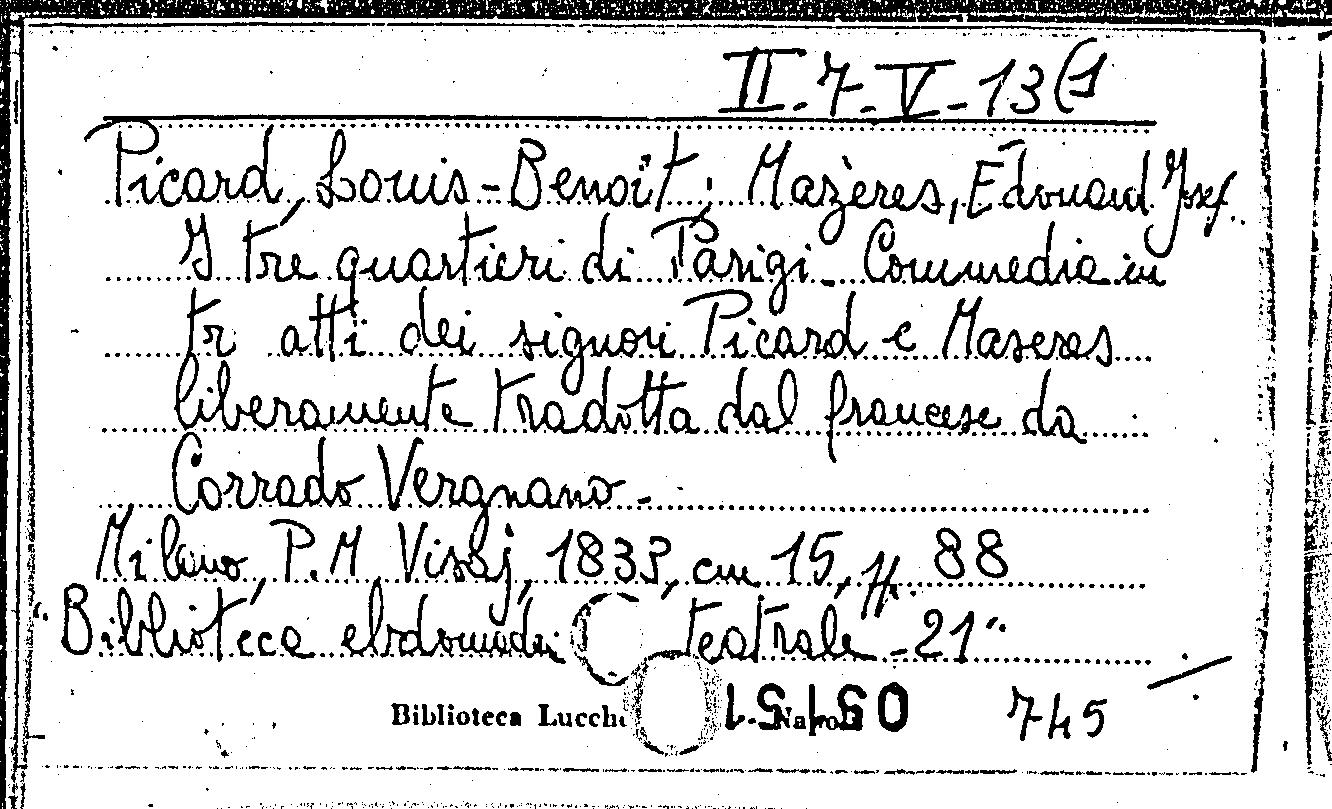 II-7-V-13(1
Picard, Louis-Benoît; Mazères, Édouard Josef
I tre quartieri di Parigi - Commedia in
tr atti dei signori Picard e Maseres
liberamente tradotta dal francese da
Corrado Vergnano -
Milano, P.M. Visaj, 1833, cm 15, pp. 88
"Biblioteca ebdomada teatrale - 21"
Biblioteca Lucche
745